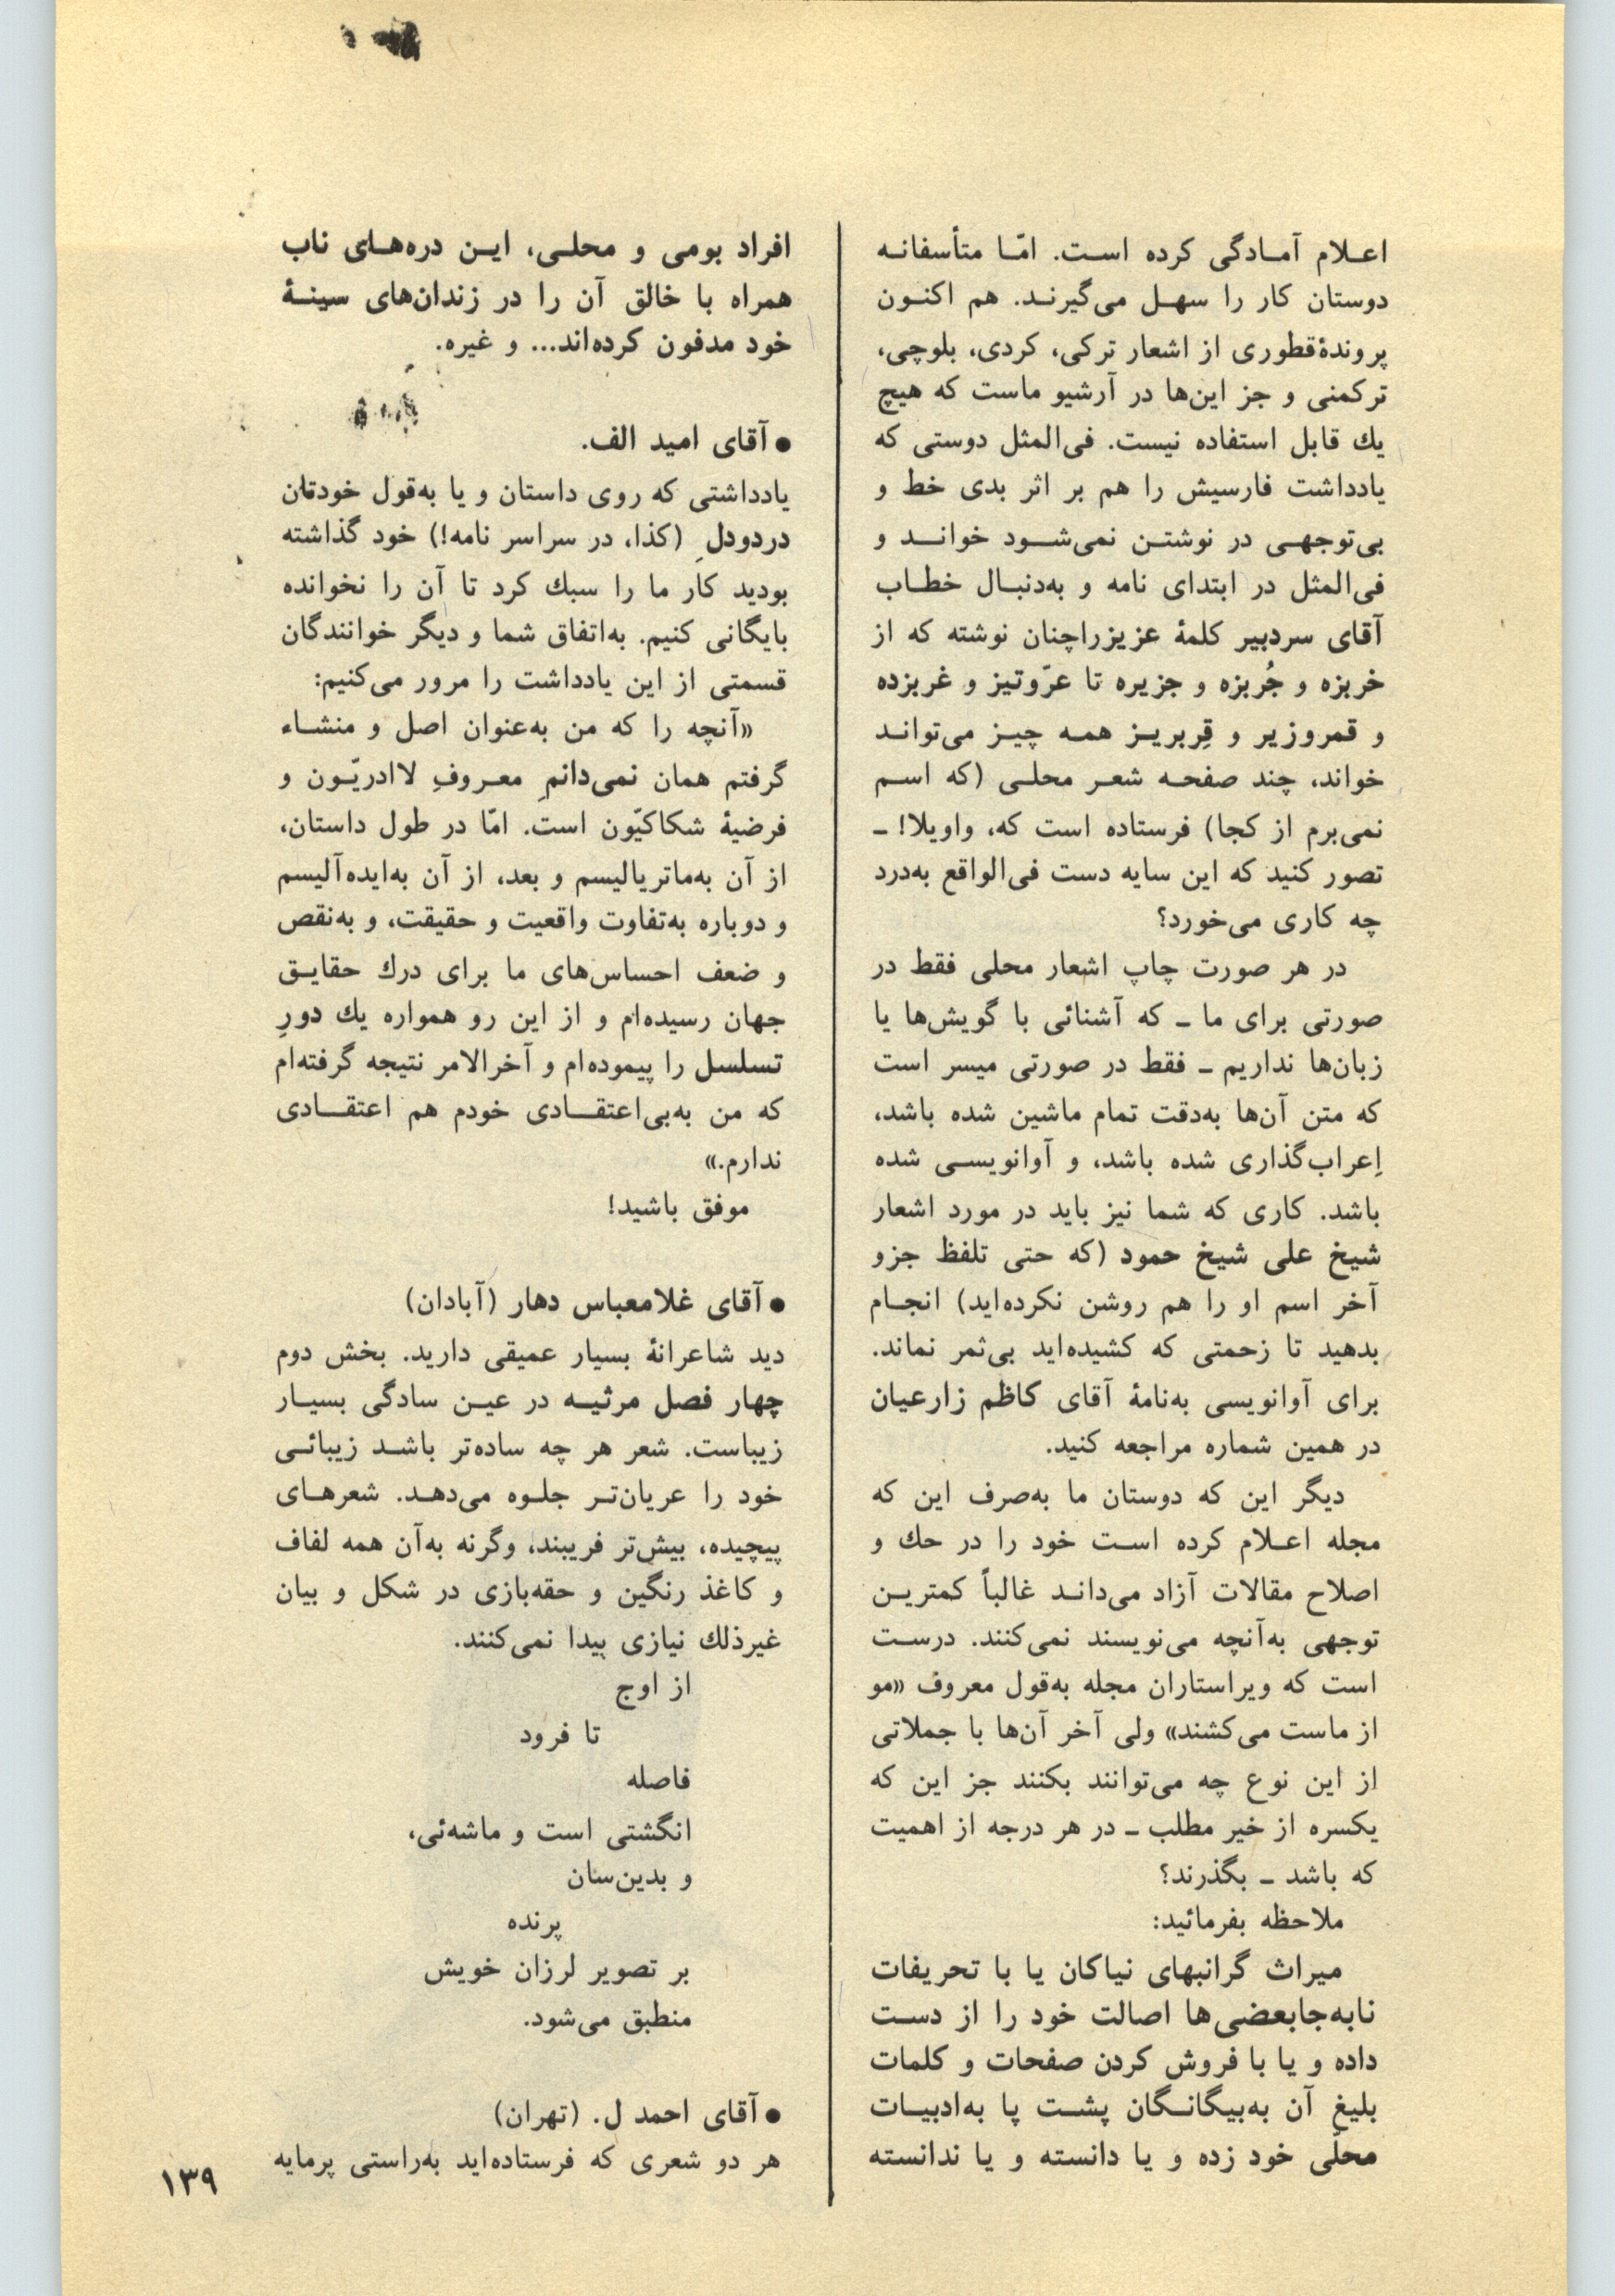 اعلام آمادگی کرده است. امّا متأسفانه
دوستان کار را سهل می‌گیرند. هم اکنون
پروندهٔ‌قطوری از اشعار ترکی، کردی، بلوچی،
ترکمنی و جز این‌ها در آرشیو ماست که هیچ
یك قابل استفاده نیست. فی‌المثل دوستی که
یادداشت فارسیش را هم بر اثر بدی خط و
بی‌توجهی در نوشتن نمی‌شود خواند و
فی‌المثل در ابتدای نامه و به‌دنبال خطاب
آقای سردبیر کلمهٔ عزیزراچنان نوشته که از
خربزه و جُربزه و جزیره تا عرّوتیز و غربزده
و قمروزیر و قِربریز همه چیز می‌تواند
خواند، چند صفحه شعر محلی (که اسم
نمی‌برم از کجا) فرستاده است که، واویلا! ـ
تصور کنید که این سایه دست فی‌الواقع به‌درد
چه کاری می‌خورد؟
در هر صورت چاپ اشعار محلی فقط در
صورتی برای ما ـ که آشنائی با گویش‌ها یا
زبان‌ها نداریم ـ فقط در صورتی میسر است
که متن آن‌ها به‌دقت تمام ماشین شده باشد،
اِعراب‌گذاری شده باشد، و آوانویسی شده
باشد. کاری که شما نیز باید در مورد اشعار
شیخ علی شیخ حمود (که حتی تلفظ جزو
آخر اسم او را هم روشن نکرده‌اید) انجام
بدهید تا زحمتی که کشیده‌اید بی‌ثمر نماند.
برای آوانویسی به‌نامهٔ آقای کاظم زارعیان
در همین شماره مراجعه کنید.
دیگر این که دوستان ما به‌صرف این که
مجله اعلام کرده است خود را در حك و
اصلاح مقالات آزاد می‌داند غالباً کمترین
توجهی به‌آنچه می‌نویسند نمی‌کنند. درست
است که ویراستاران مجله به‌قول معروف «مو
از ماست می‌کشند» ولی آخر آن‌ها با جملاتی
از این نوع چه می‌توانند بکنند جز این که
یکسره از خیر مطلب ـ در هر درجه از اهمیت
که باشد ـ بگذرند؟
ملاحظه بفرمائید:
میراث گرانبهای نیاکان یا با تحریفات
نابه‌جابعضی‌ها اصالت خود را از دست
داده و یا با فروش کردن صفحات و کلمات
بلیغ آن به‌بیگانگان پشت پا به‌ادبیات
محلّی خود زده و یا دانسته و یا ندانسته
افراد بومی و محلی، این دره‌های ناب
همراه با خالق آن را در زندان‌های سینهٔ
خود مدفون کرده‌اند... و غیره.
● آقای امید الف.
یادداشتی که روی داستان و یا به‌قول خودتان
دردودلِ (کذا، در سراسر نامه!) خود گذاشته
بودید کار ما را سبك کرد تا آن را نخوانده
بایگانی کنیم. به‌اتفاق شما و دیگر خوانندگان
قسمتی از این یادداشت را مرور می‌کنیم:
«آنچه را که من به‌عنوان اصل و منشاء
گرفتم همان نمی‌دانمِ معروفِ لاادریّون و
فرضیهٔ شکاکیّون است. امّا در طول داستان،
از آن به‌ماتریالیسم و بعد، از آن به‌ایده‌آلیسم
و دوباره به‌تفاوت واقعیت و حقیقت، و به‌نقص
و ضعف احساس‌های ما برای درك حقایق
جهان رسیده‌ام و از این رو همواره یك دورِ
تسلسل را پیموده‌ام و آخرالامر نتیجه گرفته‌ام
که من به‌بی‌اعتقادی خودم هم اعتقادی
ندارم.»
موفق باشید!
● آقای غلامعباس دهار (آبادان)
دید شاعرانهٔ بسیار عمیقی دارید. بخش دوم
چهار فصل مرثیه در عین سادگی بسیار
زیباست. شعر هر چه ساده‌تر باشد زیبائی
خود را عریان‌تر جلوه می‌دهد. شعرهای
پیچیده، بیش‌تر فریبند، وگرنه به‌آن همه لفاف
و کاغذ رنگین و حقه‌بازی در شکل و بیان
غیرذلك نیازی پیدا نمی‌کنند.
از اوج
تا فرود
فاصله
انگشتی است و ماشه‌ئی،
و بدین‌سان
پرنده
بر تصویر لرزان خویش
منطبق می‌شود.
● آقای احمد ل. (تهران)
هر دو شعری که فرستاده‌اید به‌راستی پرمایه
۱۳۹